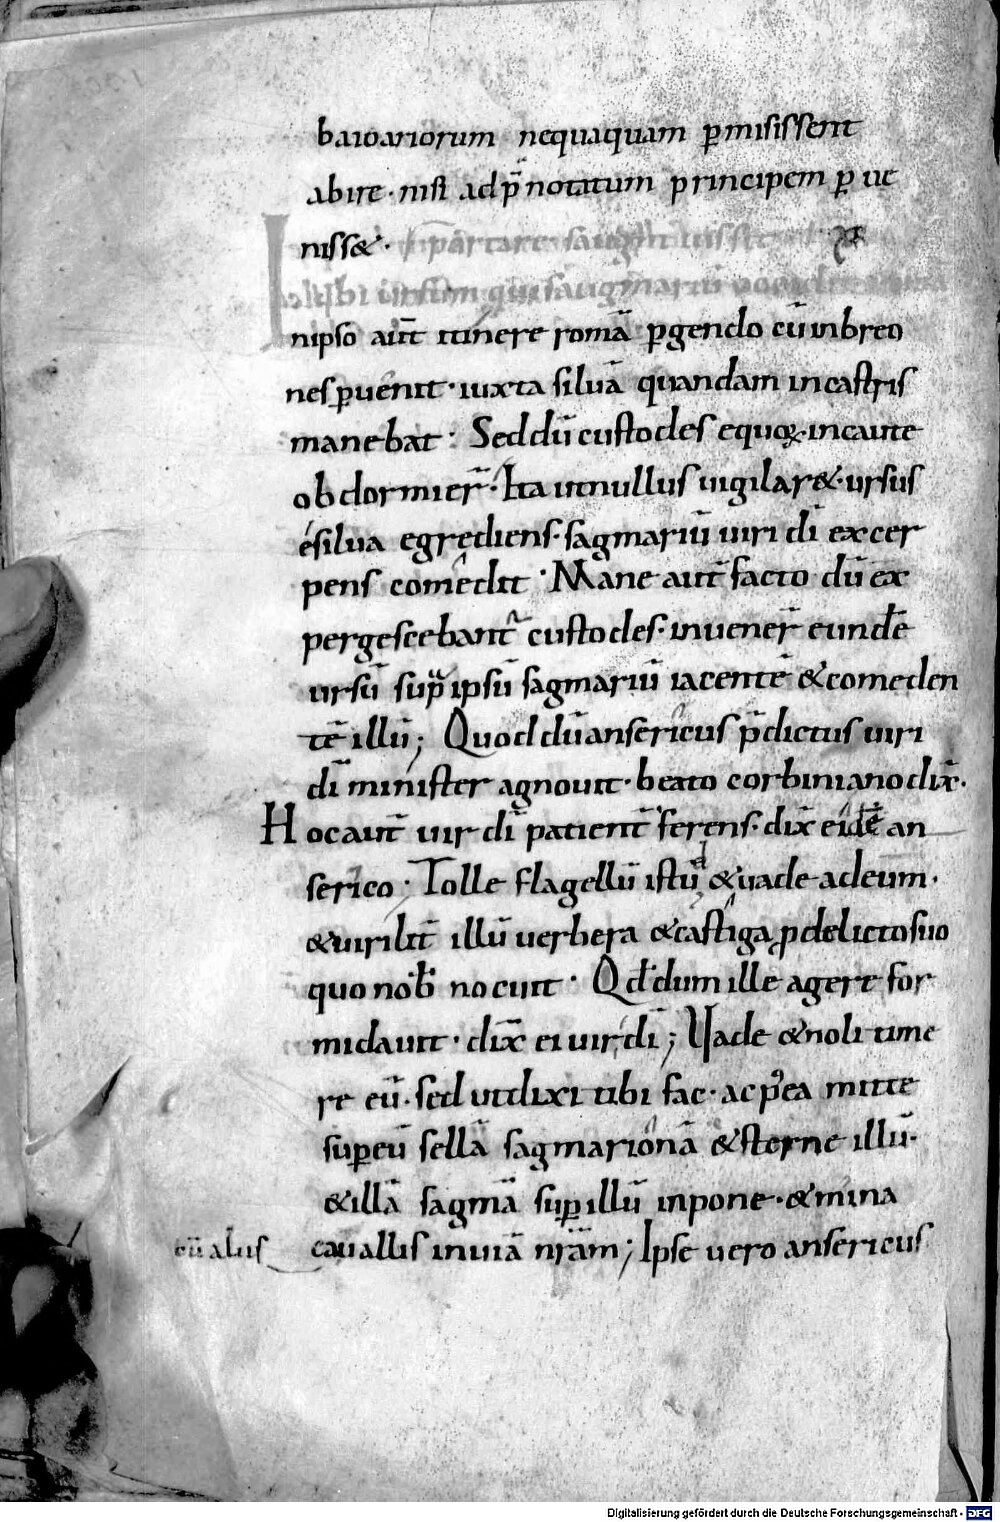 baioariorum nequaquam p̱misissent
abire · nisi ad p̄notatum principem p̱ ue
niss& · xx
Inipso aut̄ itinere romā p̱gendo cū inbreo
nes p̱uenit · iuxta siluā quandam incastris
manebat · Sed dū custodes equoꝝ · incaute
obdormier̄ · Ita utnullus uigilar& · ursus
ésilua egrediens · sagmariū uiri dī excer
pens comedit · Mane aut̄ facto dū ex
pergescebant᷑ custodes · inuener̄ eundē
ursū sup̱ ipsū sagmariū iacentē &comeden
tē illū; Quod dū ansericus p̄dictus uiri
dī minister agnouit · beato corbiniano dix̄ ·
Hoc aut̄ uir dī patient̄ ferens · dix̄ eidē an
serico · Tolle flagellū istud &uade adeum ·
&uirilit̄ illū uerbera &castiga ꝓ delicto suo
quo nob̄ nocuit · Qd̄ dum ille agere for
midauit · dix̄ ei uir dī; Uade &noli time
re eū · sed utdixi tibi fac · ac p̄ea mitte
sup̱eū sellā sagmarionā &sterne illū ·
&illā sagmā sup̱ illū inpone · &mina
cū aliis cauallis inuiā nr̄am; Ipse uero ansericus
Digitalisierung gefördert durch die Deutsche Forschungsgemeinschaft - DFG